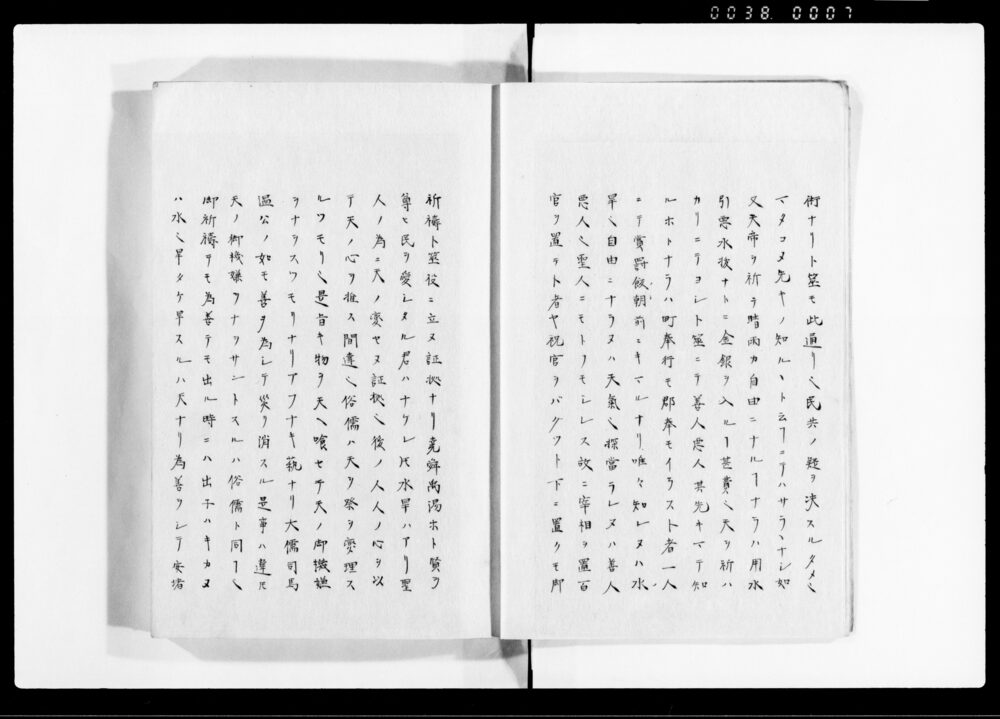 0038 0007
術ナリト筮モ此通リ〻民共ノ疑ヲ决スルタメ〻
マタコヌ先キノ知ルヽト云フヿハサラヽナシ如
又天帝ヲ祈テ晴雨カ自由ニナルヿナラハ用水
引悪水抜ナトニ金銀ヲ入ルヿ甚費〻天ヲ祈ハ
カリニテヨシト筮ニテ善人悪人其先キマテ知
ルホトナラハ町奉行モ郡奉モイラスト者一人
ニテ賞爵飯朝前ニキマルナリ唯々知レヌハ水
旱〻自由ニナラヌハ天氣〻探當ラレヌハ善人
悪人〻聖人ニモトクモシレス故ニ宰相ヲ置百
官ヲ置テト者ヤ祝官ヲバグワト下ニ置クモ即
祈祷ト筮役ニ立ヌ証拠ナリ堯舜禹湯ホト賢ヲ
尊ヒ民ヲ愛シタル君ハナケレ𪜈水旱ハアリ聖
人ノ為ニ天ノ変セヌ証拠〻後ノ人人ノ心ヲ以
テ天ノ心ヲ推ス間違〻俗儒ハ天ヲ祭ヲ変理ス
ルツモリ〻是旨キ物ヲ天ヘ喰セテ天ノ御機嫌
ヲナラスツモリナリアブナキ藝ナリ大儒司馬
温公ノ如モ善ヲ為シテ災ヲ消スル是亊ハ違𪜈
天ノ御機嫌ヲナヲサントスルハ俗儒ト同ヿ〻
御祈祷ヲモ為善テモ出ル時ニハ出子ハキカヌ
ハ水〻旱タケ旱スルハ天ナリ為善ヲシテ安堵